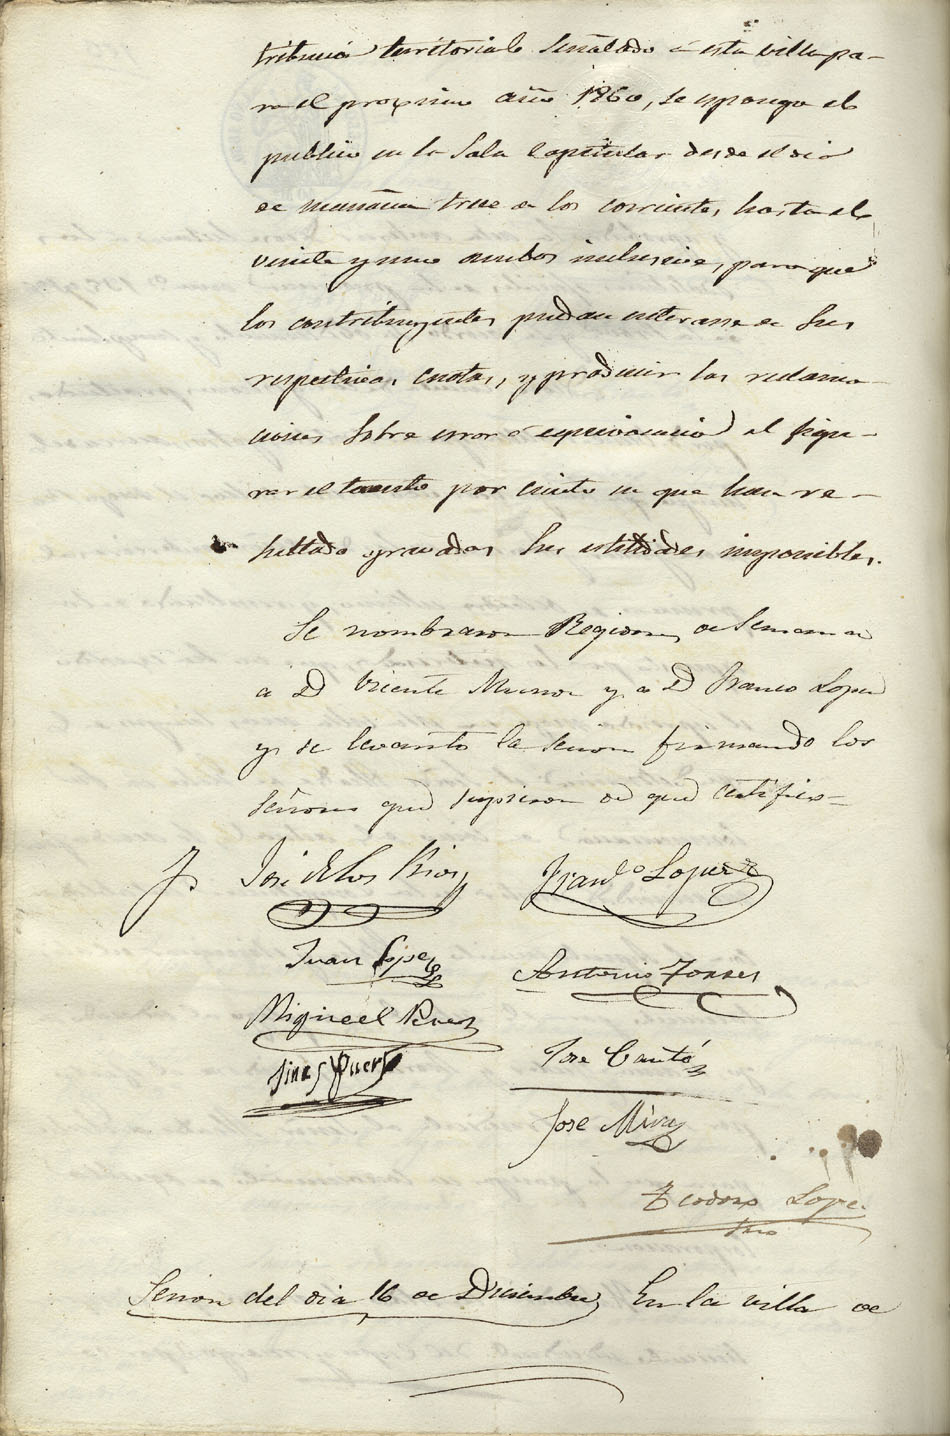 tribucion territorial señalado á esta villa pa-
ra el proximo año 1860, se esponga al
publico en la Sala Capitular desde el dia
de mañana trece de los corrientes, hasta el
veinte y nueve ambos inclusive, para que
los contribuyentes puedan enterarse de sus
respectivas cuotas, y producir las reclama-
ciones sobre error ó equivocacion al figu-
rar el tanto por ciento en que han re-
sultado gravadas sus utilidades imponibles.
Se nombraron Regidores de Semana
á D Vicente Munor y a D Franco Lopez
y se levantó la sesion firmando los
señores que supieron de que certifico=
José de los Rios
Franco Lopez
Juan Lopez
Antonio Torres
Miguel Perez
Jose Cantó
Gines Puerto
Jose Mira
Teodoro Lope
Srio
Sesion del dia 16 de Diciembre En la villa de